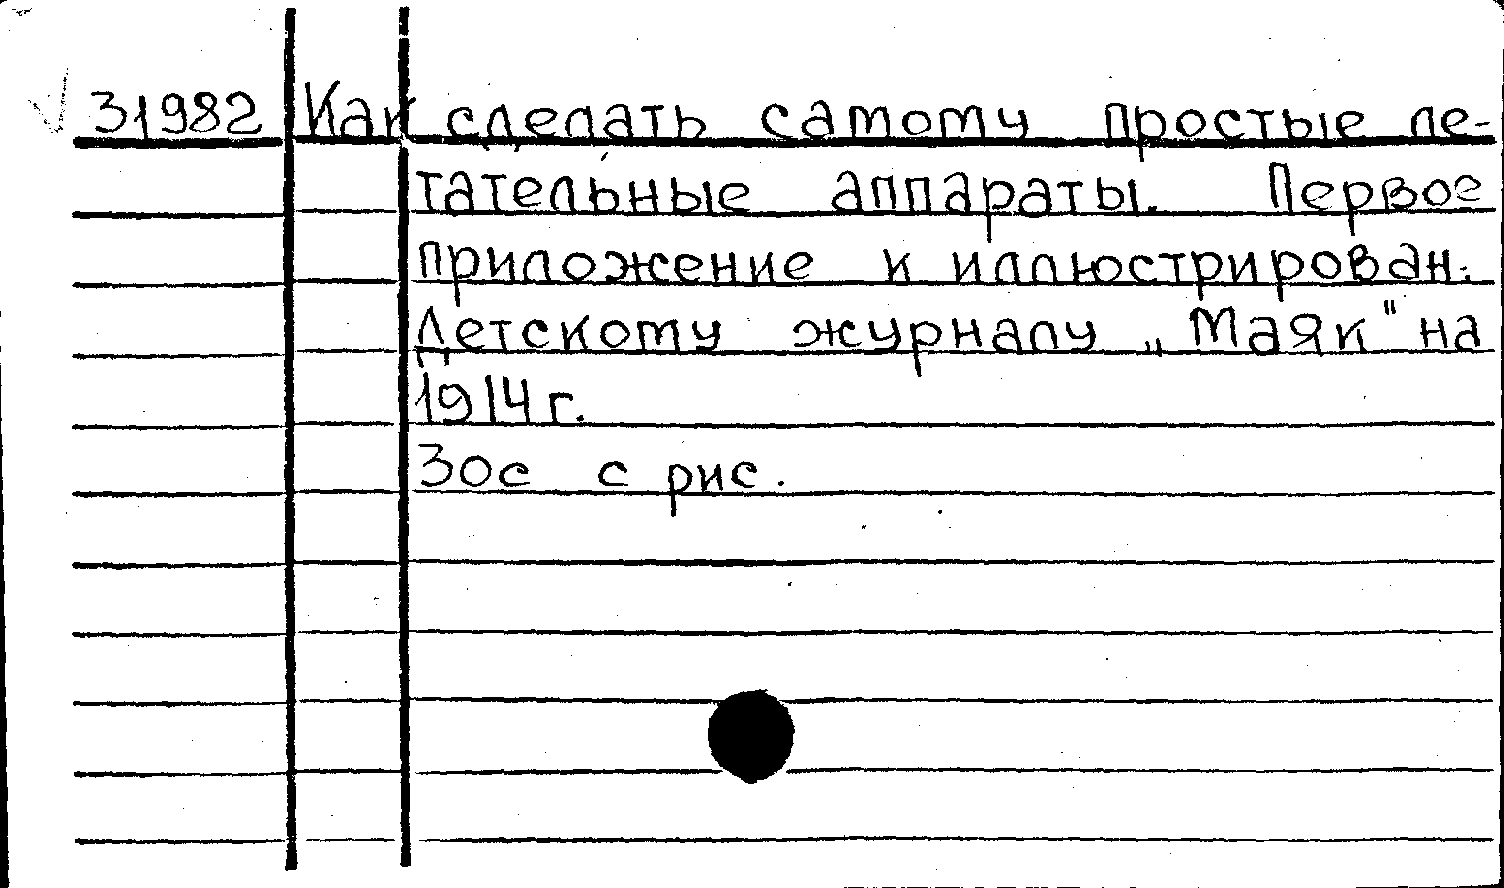 31982 Как сделать самому простые ле-
тательные аппараты. Первое
приложение к иллюстрирован.
Детскому журналу „Маяк" на
1914 г.
30с с рис.